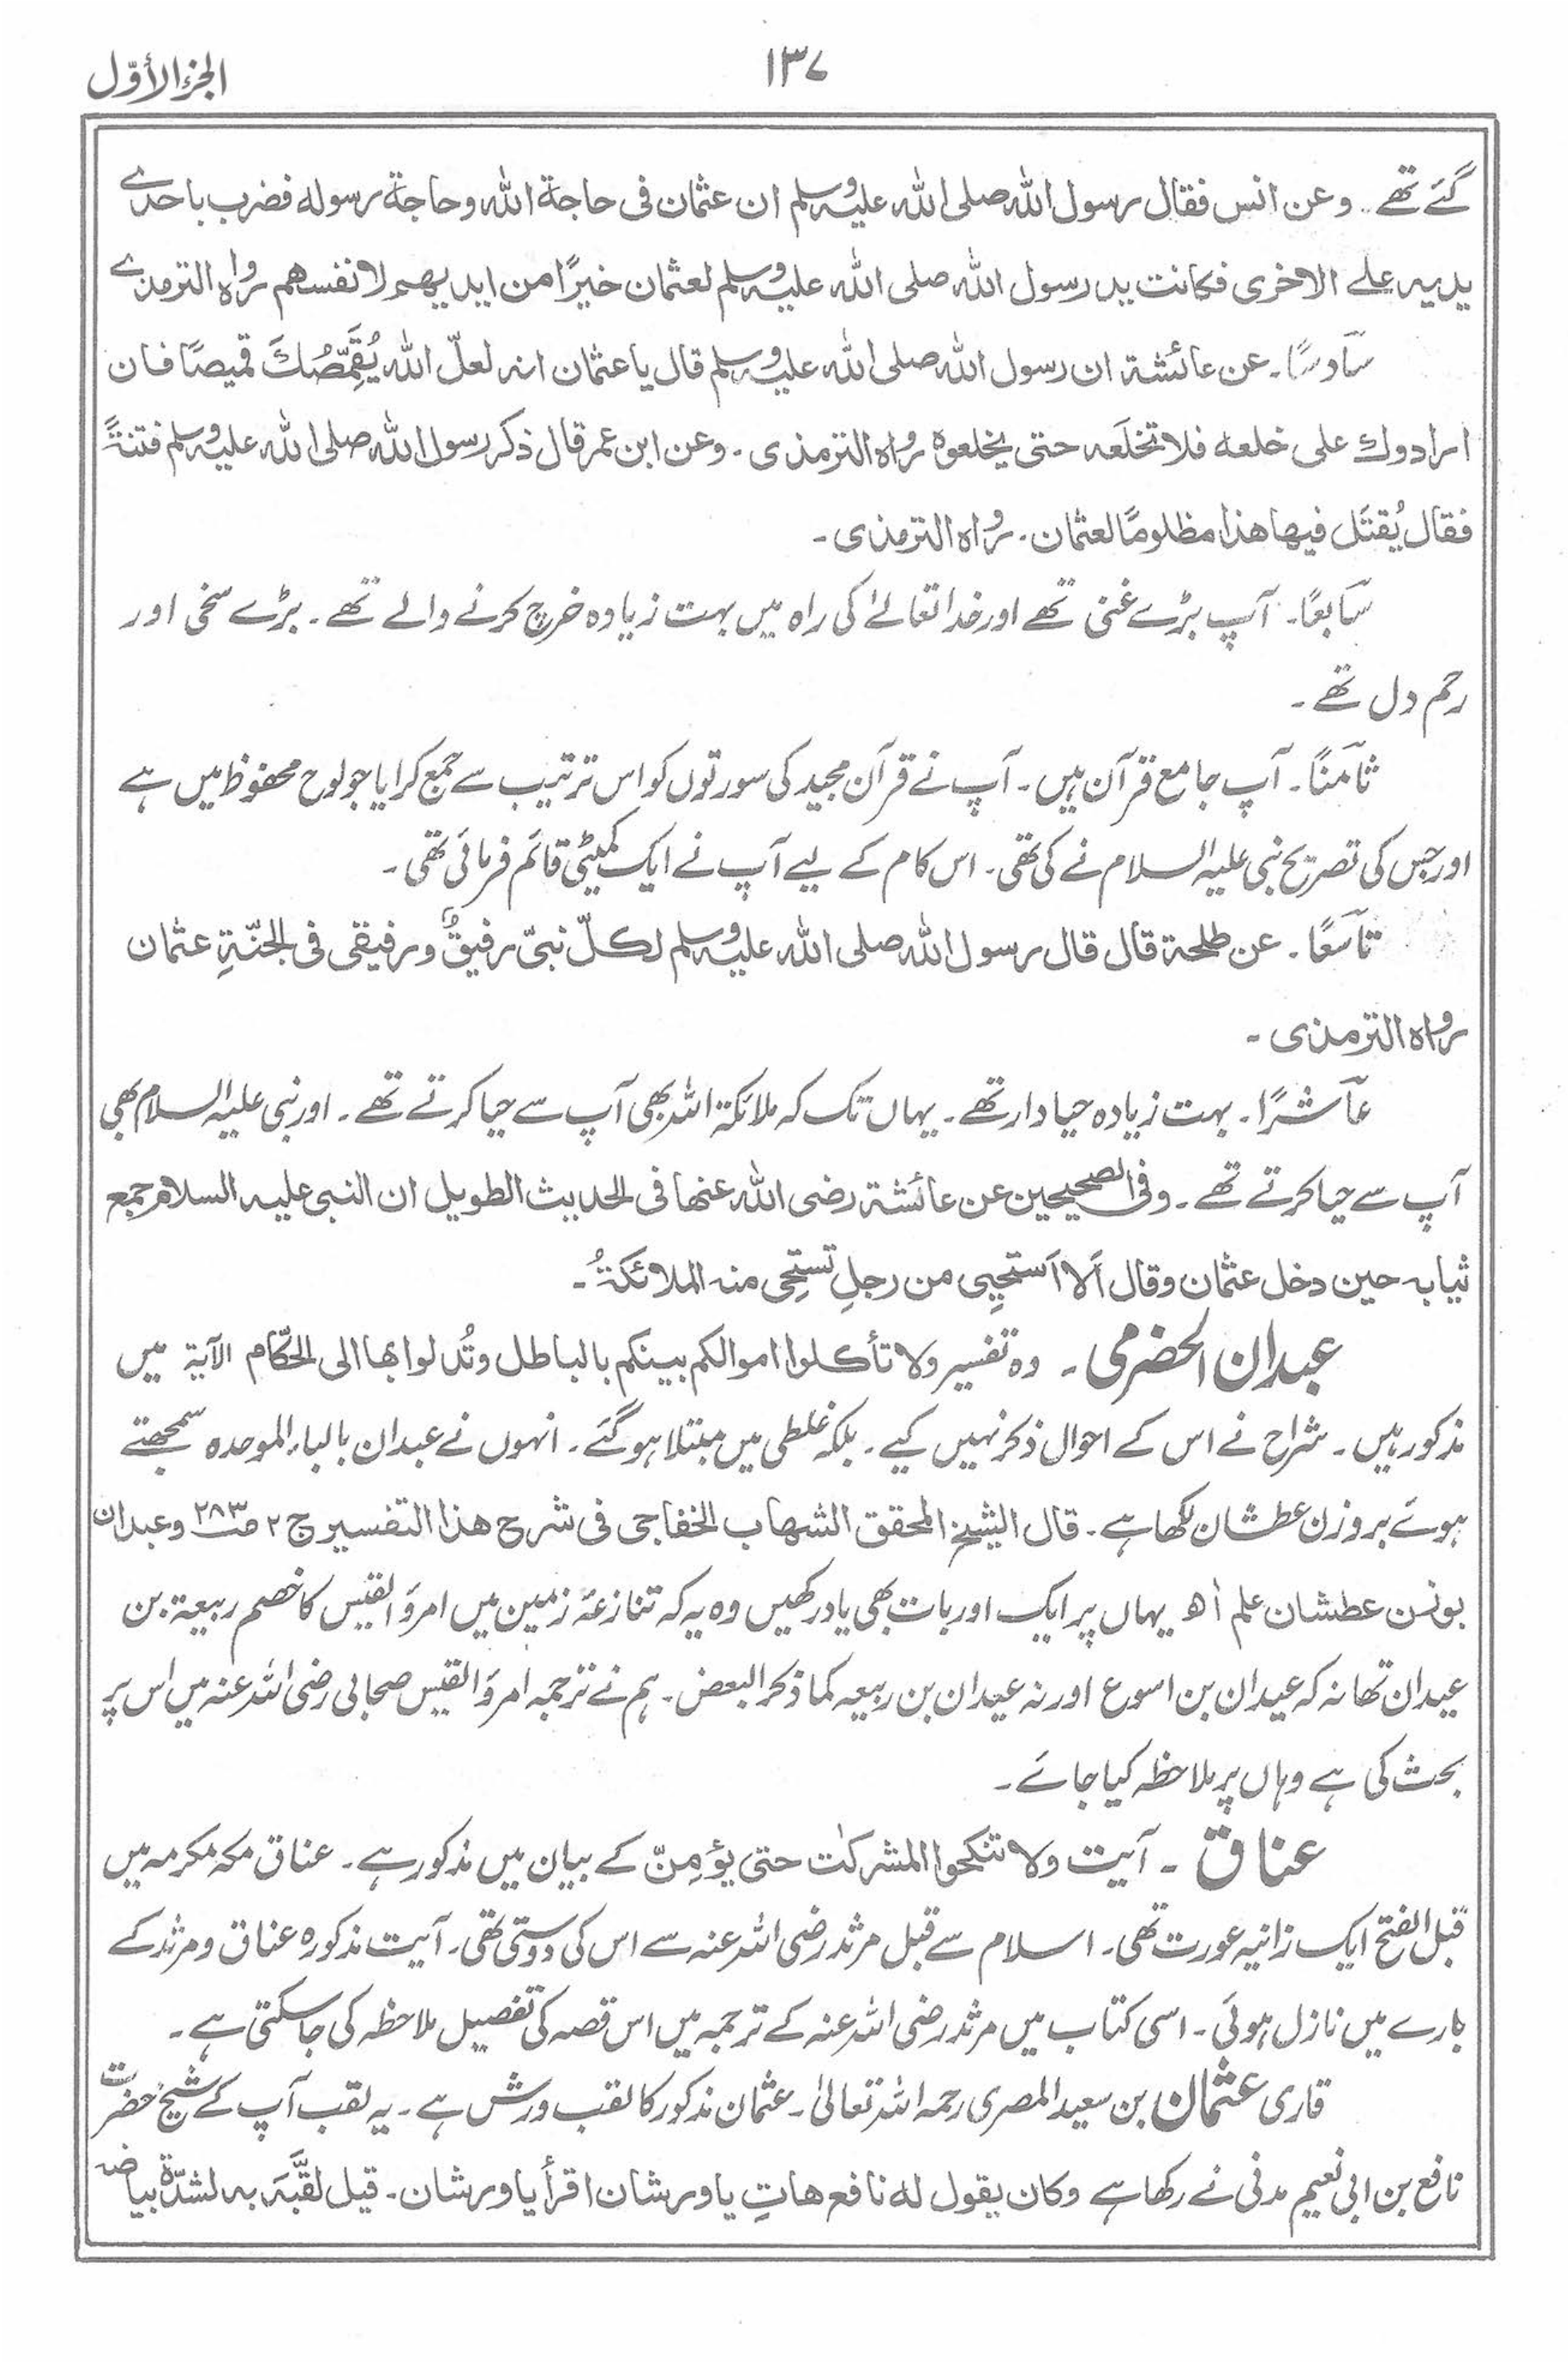 ۱۳۷
الجزء الأوّل
گئے تھے ۔ وعن انس فقال رسول الله صلی الله علیہ وسلم ان عثمان فی حاجة الله وحاجة رسوله فضرب باحدے
یدیہ علے الاخری فکانت ید رسول الله صلی الله علیہ وسلم لعثمان خیرًا من ایدیھم لانفسھم رواہ الترمذے
سَادسًا ۔ عن عائشة ان رسول الله صلی الله علیہ وسلم قال یا عثمان انہ لعلّ الله یُقَمِّصُكَ قمیصًا فان
ارادوك علی خلعہ فلا تخلَعہ حتی یخلعوہ رواہ الترمذی ۔ وعن ابن عمر قال ذکر رسول الله صلی الله علیہ وسلم فتنةً
فقال یُقتَل فیھا ھذا مظلومًا لعثمان ۔ رواہ الترمذی ۔
سَابعًا ۔ آپ بڑے غنی تھے اور خدا تعالےٰ کی راہ میں بہت زیادہ خرچ کرنے والے تھے ۔ بڑے سخی اور
رحم دل تھے ۔
ثآمنًا ۔ آپ جامع قرآن ہیں ۔ آپ نے قرآن مجید کی سورتوں کو اس ترتیب سے جمع کرایا جو لوح محفوظ میں ہے
اور جس کی تصریح نبی علیہ السلام نے کی تھی ۔ اس کام کے لیے آپ نے ایک کمیٹی قائم فرمائی تھی ۔
تآسعًا ۔ عن طلحة قال قال رسول الله صلی الله علیہ وسلم لکلّ نبیّ رفیقٌ ورفیقی فی الجنّةِ عثمان
رواہ الترمذی ۔
عآشرًا ۔ بہت زیادہ حیادار تھے ۔ یہاں تک کہ ملائکۃ اللہ بھی آپ سے حیا کرتے تھے ۔ اور نبی علیہ السلام بھی
آپ سے حیا کرتے تھے ۔ وفی الصحیحین عن عائشة رضی الله عنھا فی الحدیث الطویل ان النبی علیہ السلام جمع
ثیابہ حین دخل عثمان وقال اَلا اَستحیِی من رجلٍ تستحِی منہ الملائکةُ ۔
عبدان الحضرمی ۔ وہ تفسیر ولا تأکلوا اموالکم بینکم بالباطل وتُدلوا بھا الی الحکّام الآیۃ میں
مذکور ہیں ۔ شراح نے اس کے احوال ذکر نہیں کیے ۔ بلکہ غلطی میں مبتلا ہوگئے ۔ انہوں نے عبدان بالباء الموحدہ سمجھتے
ہوئے بروزن عطشان لکھا ہے ۔ قال الشیخ المحقق الشھاب الخفاجی فی شرح ھذا التفسیر ج ۲ ص۲۸۳ وعبدان
بوزن عطشان علم اھ یہاں پر ایک اور بات بھی یاد رکھیں وہ یہ کہ تنازعۂ زمین میں امرؤ القیس کا خصم ربیعۃ بن
عیدان تھا نہ کہ عیدان بن اسوع اور نہ عیدان بن ربیعہ کما ذکر البعض ۔ ہم نے ترجمہ امرؤ القیس صحابی رضی اللہ عنہ میں اس پر
بحث کی ہے وہاں پر ملاحظہ کیا جائے ۔
عناق ۔ آیت ولا تنکحوا المشرکٰت حتی یؤمِنّ کے بیان میں مذکور ہے ۔ عناق مکہ مکرمہ میں
قبل الفتح ایک زانیہ عورت تھی ۔ اسلام سے قبل مرثد رضی اللہ عنہ سے اس کی دوستی تھی ۔ آیت مذکورہ عناق ومرثد کے
بارے میں نازل ہوئی ۔ اسی کتاب میں مرثد رضی اللہ عنہ کے ترجمہ میں اس قصہ کی تفصیل ملاحظہ کی جاسکتی ہے ۔
قاری عثمان بن سعید المصری رحمہ اللہ تعالیٰ ۔ عثمان مذکور کا لقب ورش ہے ۔ یہ لقب آپ کے شیخ حضرت
نافع بن ابی نعیم مدنی نے رکھا ہے وکان یقول لہ نافع ھاتِ یا ورشان اقرأ یا ورشان ۔ قیل لقَّبَہ بہ لشدّة بیاضہ